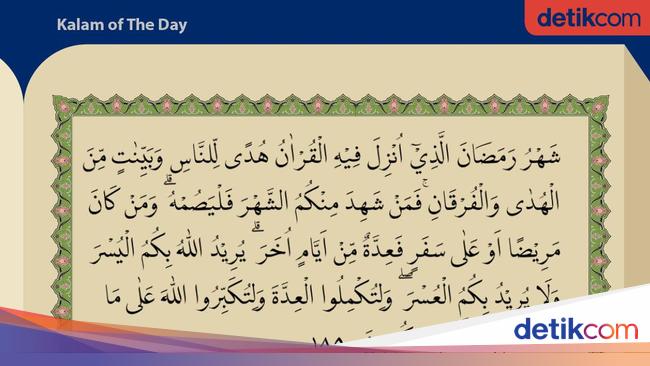 Kalam of The Day
detikcom
شَهْرُ رَمَضَانَ الَّذِيْٓ اُنْزِلَ فِيْهِ الْقُرْاٰنُ هُدًى لِّلنَّاسِ وَبَيِّنٰتٍ مِّنَ
الْهُدٰى وَالْفُرْقَانِۚ فَمَنْ شَهِدَ مِنْكُمُ الشَّهْرَ فَلْيَصُمْهُۗ وَمَنْ كَانَ
مَرِيْضًا اَوْ عَلٰى سَفَرٍ فَعِدَّةٌ مِّنْ اَيَّامٍ اُخَرَۗ يُرِيْدُ اللّٰهُ بِكُمُ الْيُسْرَ
وَلَا يُرِيْدُ بِكُمُ الْعُسْرَۖ وَلِتُكْمِلُوا الْعِدَّةَ وَلِتُكَبِّرُوا اللّٰهَ عَلٰى مَا
detikcom